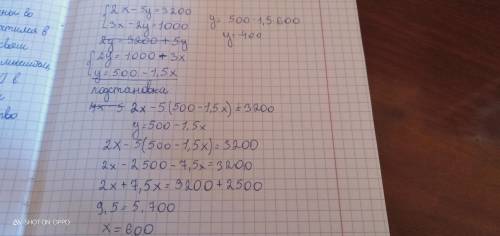 ны во
ратился в
своем
В
ство
{2x-5y=3200
{3x-2y=1000
2y=3200+5y
{2y=1000-3x
{y=500-1,5x
подстановка
2x-5(500-1,5x)=3200
y=500-1,5x
2x-5(500-1,5x)=3200
2x-2500-7,5x=3200
2x+7,5x=3200+2500
9,5=5,700
x=600
y=500-1,5.600
y=400
SHOT ON OPPO